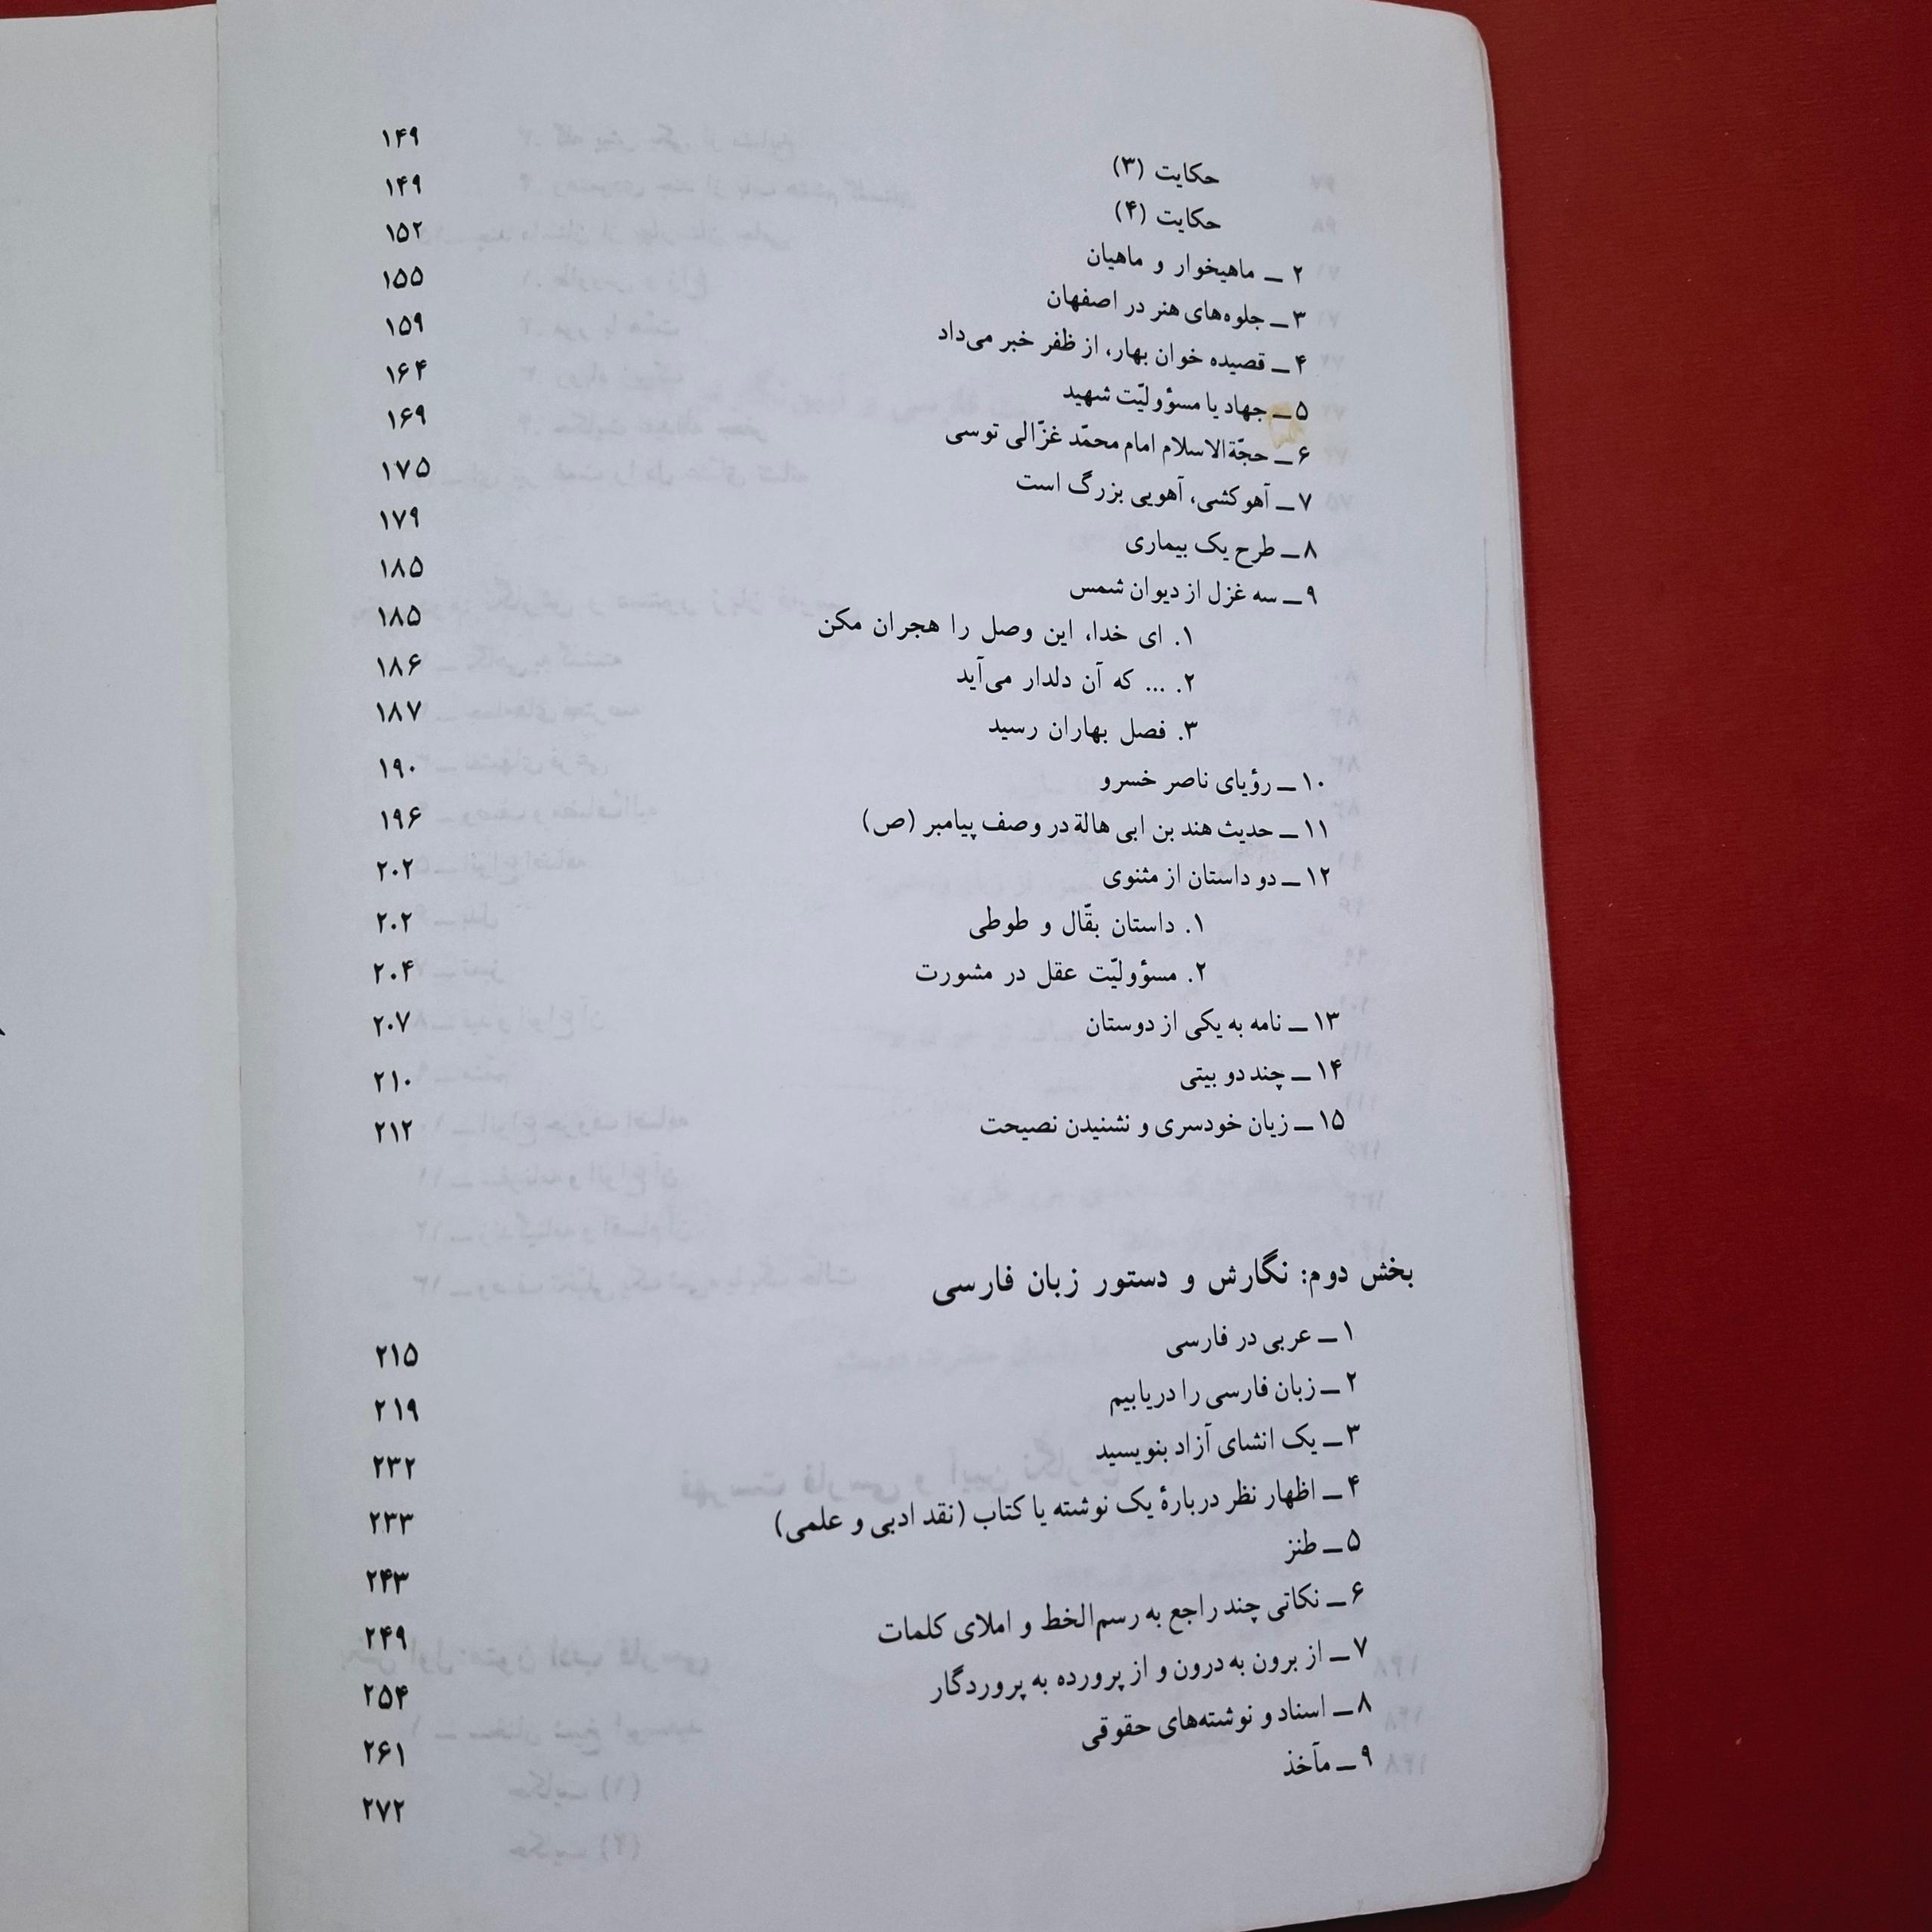 حکایت (۳) ۱۴۹
حکایت (۴) ۱۴۹
۲ ــ ماهیخوار و ماهیان ۱۵۲
۳ ــ جلوه‌های هنر در اصفهان ۱۵۵
۴ ــ قصیده خوان بهار، از ظفر خبر می‌داد ۱۵۹
۵ ــ جهاد یا مسؤولیّت شهید ۱۶۴
۶ ــ حجّةالاسلام امام محمّد غزّالی توسی ۱۶۹
۷ ــ آهوکشی، آهویی بزرگ است ۱۷۵
۸ ــ طرح یک بیماری ۱۷۹
۹ ــ سه غزل از دیوان شمس ۱۸۵
۱. ای خدا، این وصل را هجران مکن ۱۸۵
۲. ... که آن دلدار می‌آید ۱۸۶
۳. فصل بهاران رسید ۱۸۷
۱۰ ــ رؤیای ناصر خسرو ۱۹۰
۱۱ ــ حدیث هند بن ابی هالة در وصف پیامبر (ص) ۱۹۶
۱۲ ــ دو داستان از مثنوی ۲۰۲
۱. داستان بقّال و طوطی ۲۰۲
۲. مسؤولیّت عقل در مشورت ۲۰۴
۱۳ ــ نامه به یکی از دوستان ۲۰۷
۱۴ ــ چند دو بیتی ۲۱۰
۱۵ ــ زیان خودسری و نشنیدن نصیحت ۲۱۲
بخش دوم: نگارش و دستور زبان فارسی
۱ ــ عربی در فارسی ۲۱۵
۲ ــ زبان فارسی را دریابیم ۲۱۹
۳ ــ یک انشای آزاد بنویسید ۲۳۲
۴ ــ اظهار نظر دربارهٔ یک نوشته یا کتاب (نقد ادبی و علمی) ۲۳۳
۵ ــ طنز ۲۴۳
۶ ــ نکاتی چند راجع به رسم‌الخط و املای کلمات ۲۴۹
۷ ــ از برون به درون و از پرورده به پروردگار ۲۵۴
۸ ــ اسناد و نوشته‌های حقوقی ۲۶۱
۹ ــ مآخذ ۲۷۲